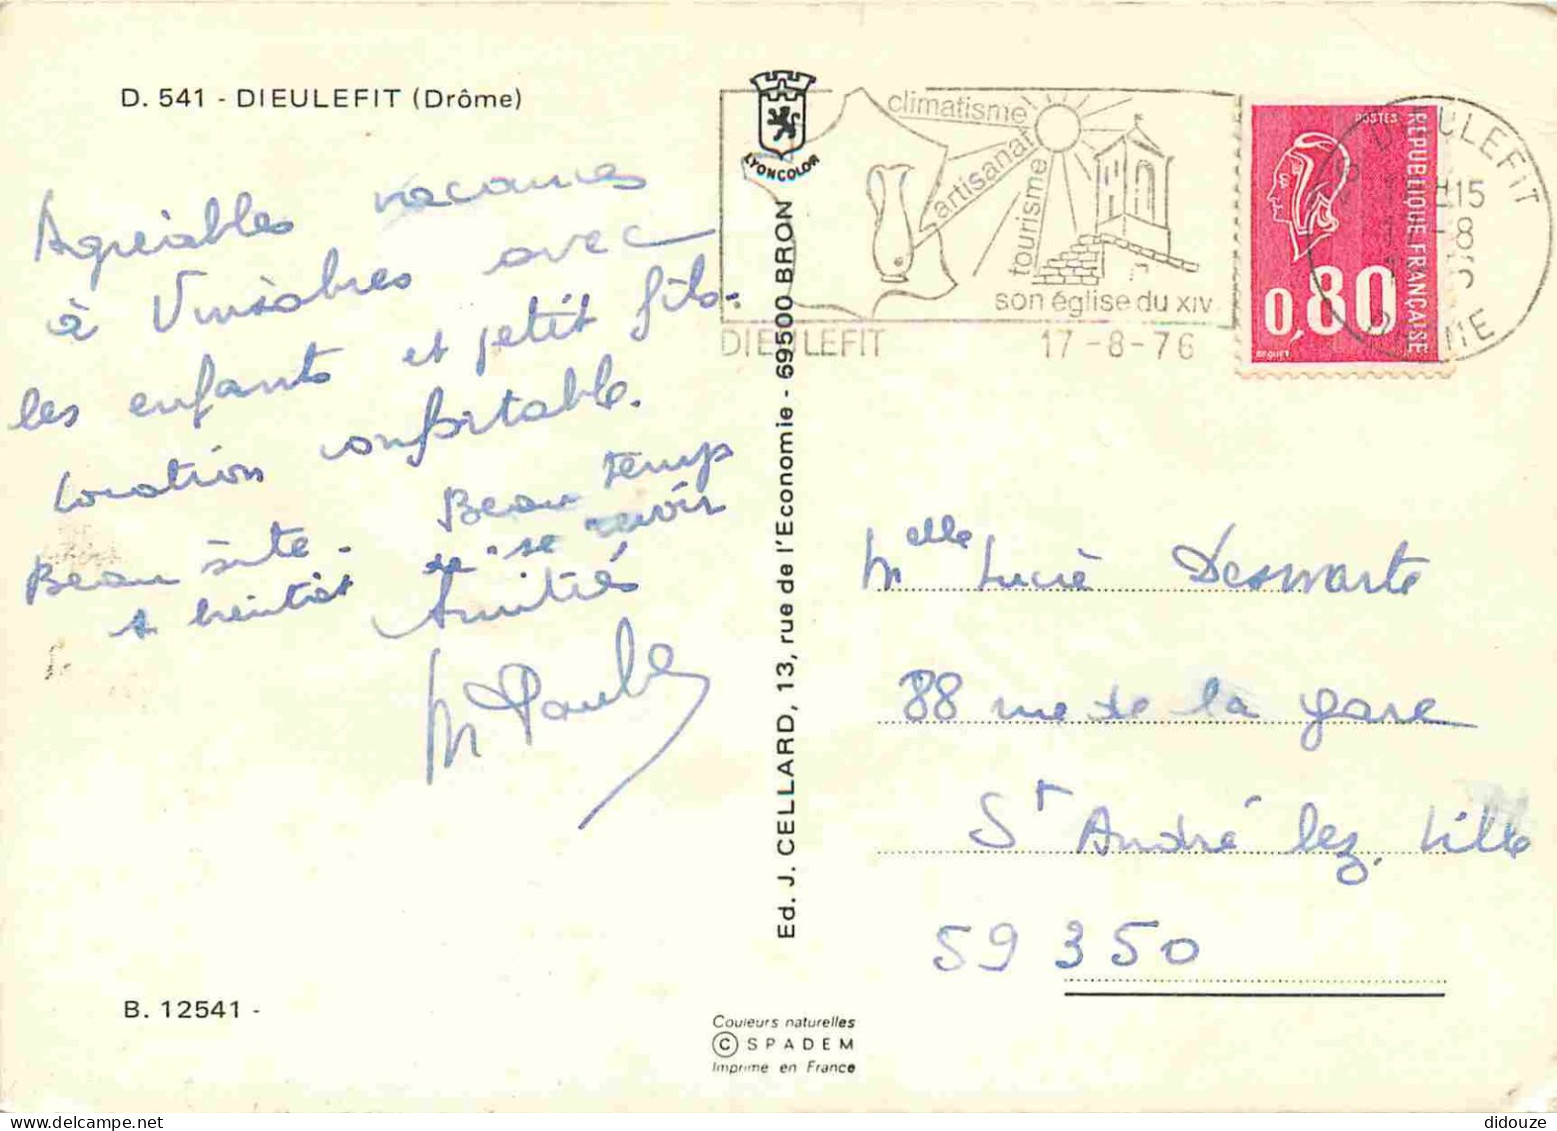 D. 541 - DIEULEFIT (Drôme)
Agréables vacances
à Vinsobres avec
les enfants et petit fils.
Location confortable.
Beau site. Beau temps
A bientôt de se revoir
Amitiés
LYONCOLOR
climatisme
artisanat
tourisme
son église du XIV
DIEULEFIT 17-8-76
DIEULEFIT
DROME
POSTES
REPUBLIQUE FRANÇAISE
0,80
BEQUET
Ed. J. CELLARD, 13, rue de l'Economie - 69500 BRON
Melle Lucie Desmarte
88 rue de la gare
St André lez. Lille
59350
B. 12541 -
Couleurs naturelles
© SPADEM
Imprimé en France
didouze